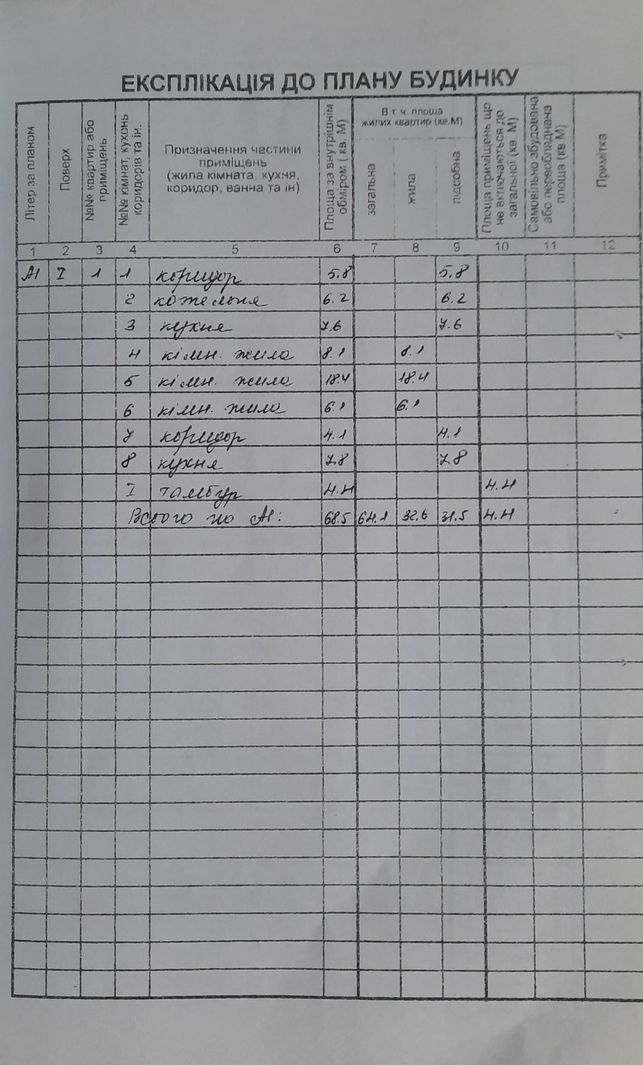 ЕКСПЛІКАЦІЯ ДО ПЛАНУ БУДИНКУ
Літер за планом
Поверх
№№ квартир або приміщень
№№ кімнат, кухонь коридорів та ін.
Призначення частини
приміщень
(жила кімната, кухня,
коридор, ванна та ін)
Площа за внутрішнім обміром ( кв. М)
В т. ч. площа
жилих квартир (кв.М)
загальна
жила
підсобна
Площа приміщень що не включаються до загальної (кв. М)
Самовільно збудована або переобладнана площа (кв М)
Примітка
1 2 3 4 5 6 7 8 9 10 11 12
А1 I 1 1 коридор 5.8 5.8
2 котельня 6.2 6.2
3 кухня 7.6 7.6
4 кімн. жила 8.1 8.1
5 кімн. жила 18.4 18.4
6 кімн. жила 6.1 6.1
7 коридор 4.1 4.1
8 кухня 7.8 7.8
I тамбур 4.4 4.4
Всього по А1: 68.5 64.1 32.6 31.5 4.4